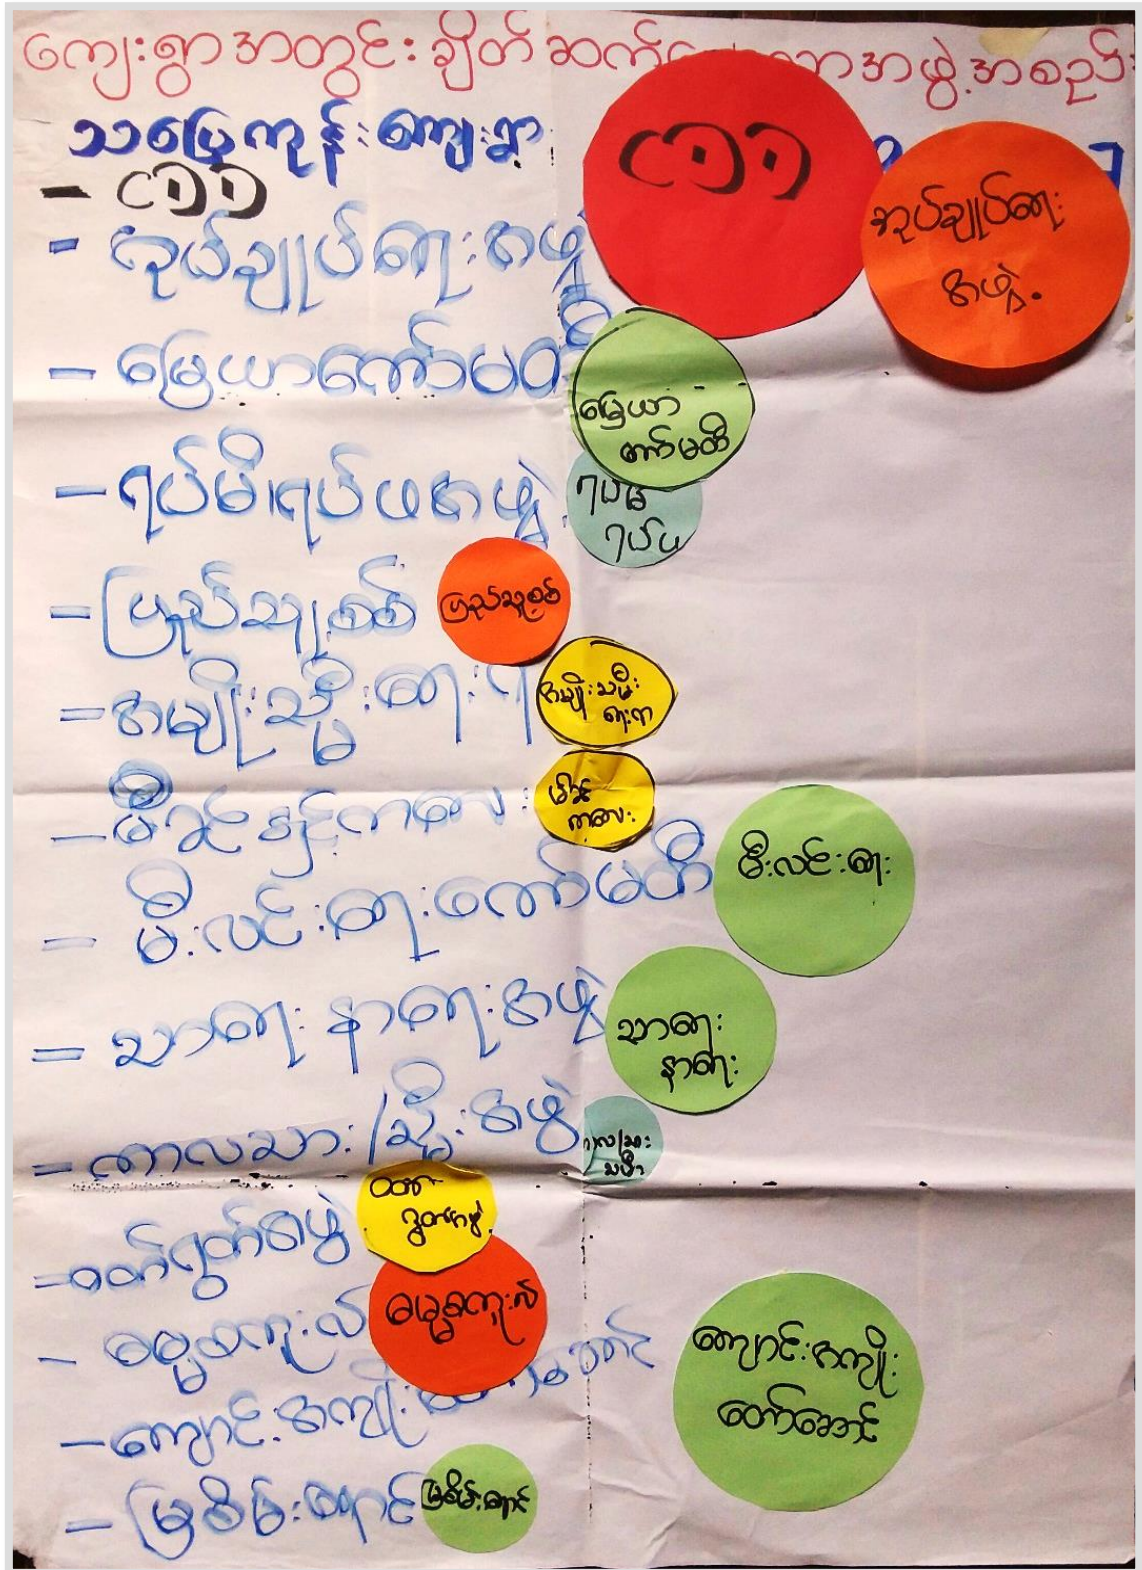 ကျေးရွာအတွင်း ချိတ်ဆက် အဖွဲ့အစည်း
သပြေကုန်းကျေးရွာ
- ငဝဝ
- အုပ်ချုပ်ရေးအဖွဲ့
- မြေယာကော်မတီ
- ရပ်မိ၊ရပ်ဖအဖွဲ့
- ပြည်သူ့စစ်
- အမျိုးသမီးရေးရာ
- မိခင်နှင့်ကလေး
- မီးလင်းရေးကော်မတီ
- သာရေးနာရေးအဖွဲ့
- ကာလသား/သမီးအဖွဲ့
- ဝတ်ရွတ်အဖွဲ့
- ဓမ္မစကူးလ်
- ကျောင်းအကျိုးဆောင်
- မြစိမ်းရောင်
ငဝဝ
အုပ်ချုပ်ရေး
အဖွဲ့
မြေယာ
ကော်မတီ
ရပ်မိ
ရပ်ဖ
ပြည်သူ့စစ်
အမျိုးသမီး
ရေးရာ
မိခင်
ကလေး
မီးလင်းရေး
သာရေး
နာရေး
သမီး
ဝတ်
ရွတ်အဖွဲ့
ဓမ္မစကူးလ်
ကျောင်းအကျိုး
တော်ဆောင်
မြစိမ်းရောင်